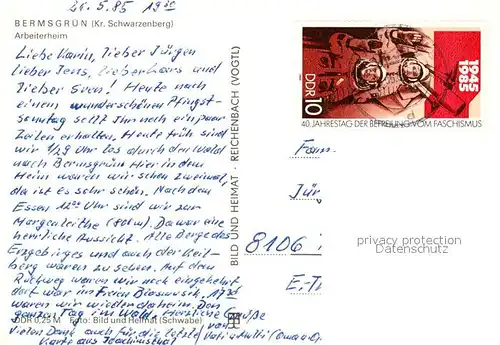 26.5.85 19³⁰
BERMSGRÜN (Kr. Schwarzenberg)
Arbeiterheim
Liebe Karin, lieber Jürgen
lieber Jens, lieber Lars und
lieber Sven! Heute nach
einem wunderschönen Pfingst-
sonntag sollt Ihr noch ein paar
Zeilen erhalten. Heute früh sind
wir 1/2 9 Uhr los durch den Wald
nach Bermsgrün. Hier in dem
Heim waren wir schon zweimal,
da ist es sehr schön. Nach dem
Essen 12⁰⁰ Uhr sind wir zur
Morgenleithe (801m). Da war eine
herrliche Aussicht. Alle Berge des
Erzgebirges und auch der Keil-
berg waren zu sehen. Auf dem
Rückweg waren wir noch eingekehrt
dort war im Freien Blasmusik. 17³⁰
waren wir wieder daheim. Den
ganzen Tag im Wald. Herzliche Grüße
von
Vielen Dank auch für die letzte Vati + Mutti (Oma + O.
Karte aus Joachimsthal
DDR 0,25 M Foto: Bild und Heimat (Schwabe)
BILD UND HEIMAT · REICHENBACH (VOGTL)
DDR 10
1945
1985
40. JAHRESTAG DER BEFREIUNG VOM FASCHISMUS
Fam.
Jür
8106
privacy protection
Datenschutz